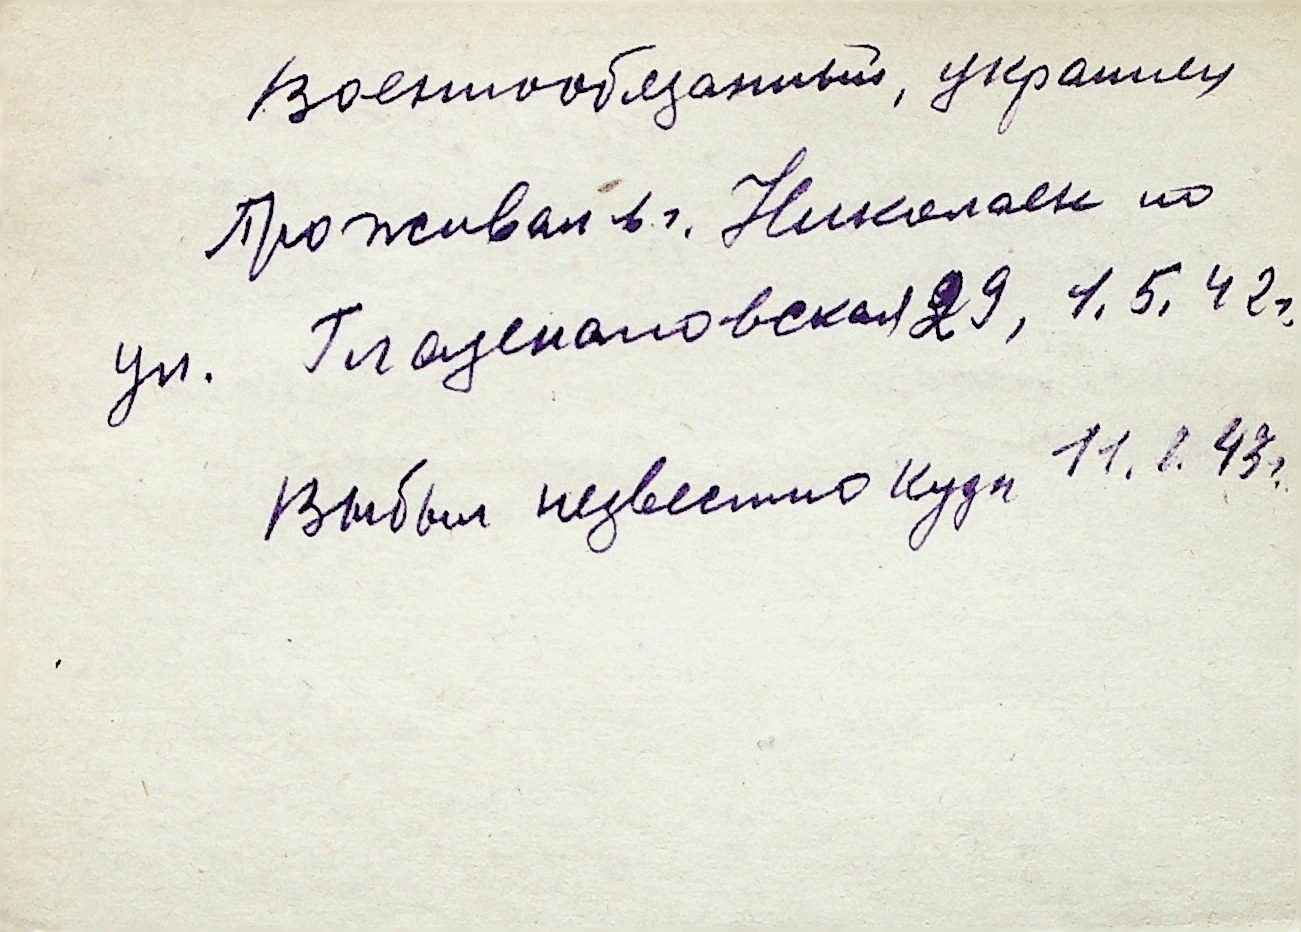 Военнообязанный, украинец
Проживал в г. Николаев по
ул. Глазенаповская 29, 1.5.42г.
Выбыл неизвестно куда 11.1.43г.